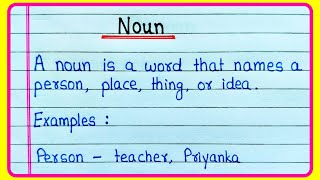 Noun
A noun is a word that names a
person, place, thing, or idea.
Examples :
Person – teacher, Priyanka